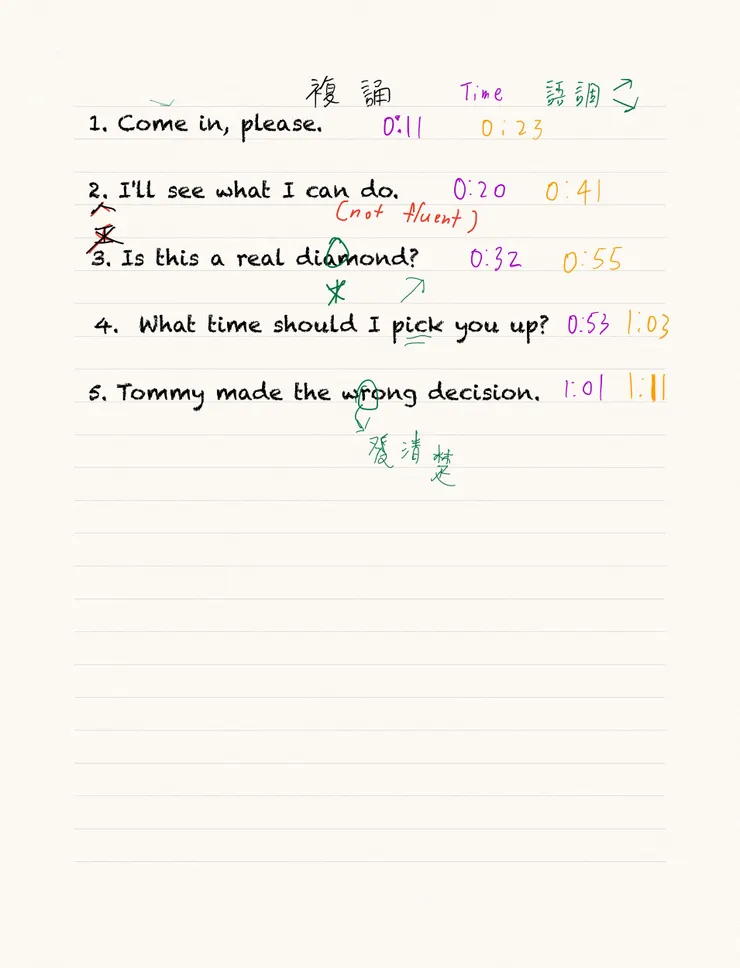 複誦 Time 語調
1. Come in, please. 0:11 0:23
2. I'll see what I can do. 0:20 0:41
(not fluent)
3. Is this a real diamond? 0:32 0:55
4. What time should I pick you up? 0:53 1:03
5. Tommy made the wrong decision. 1:01 1:11
發清楚